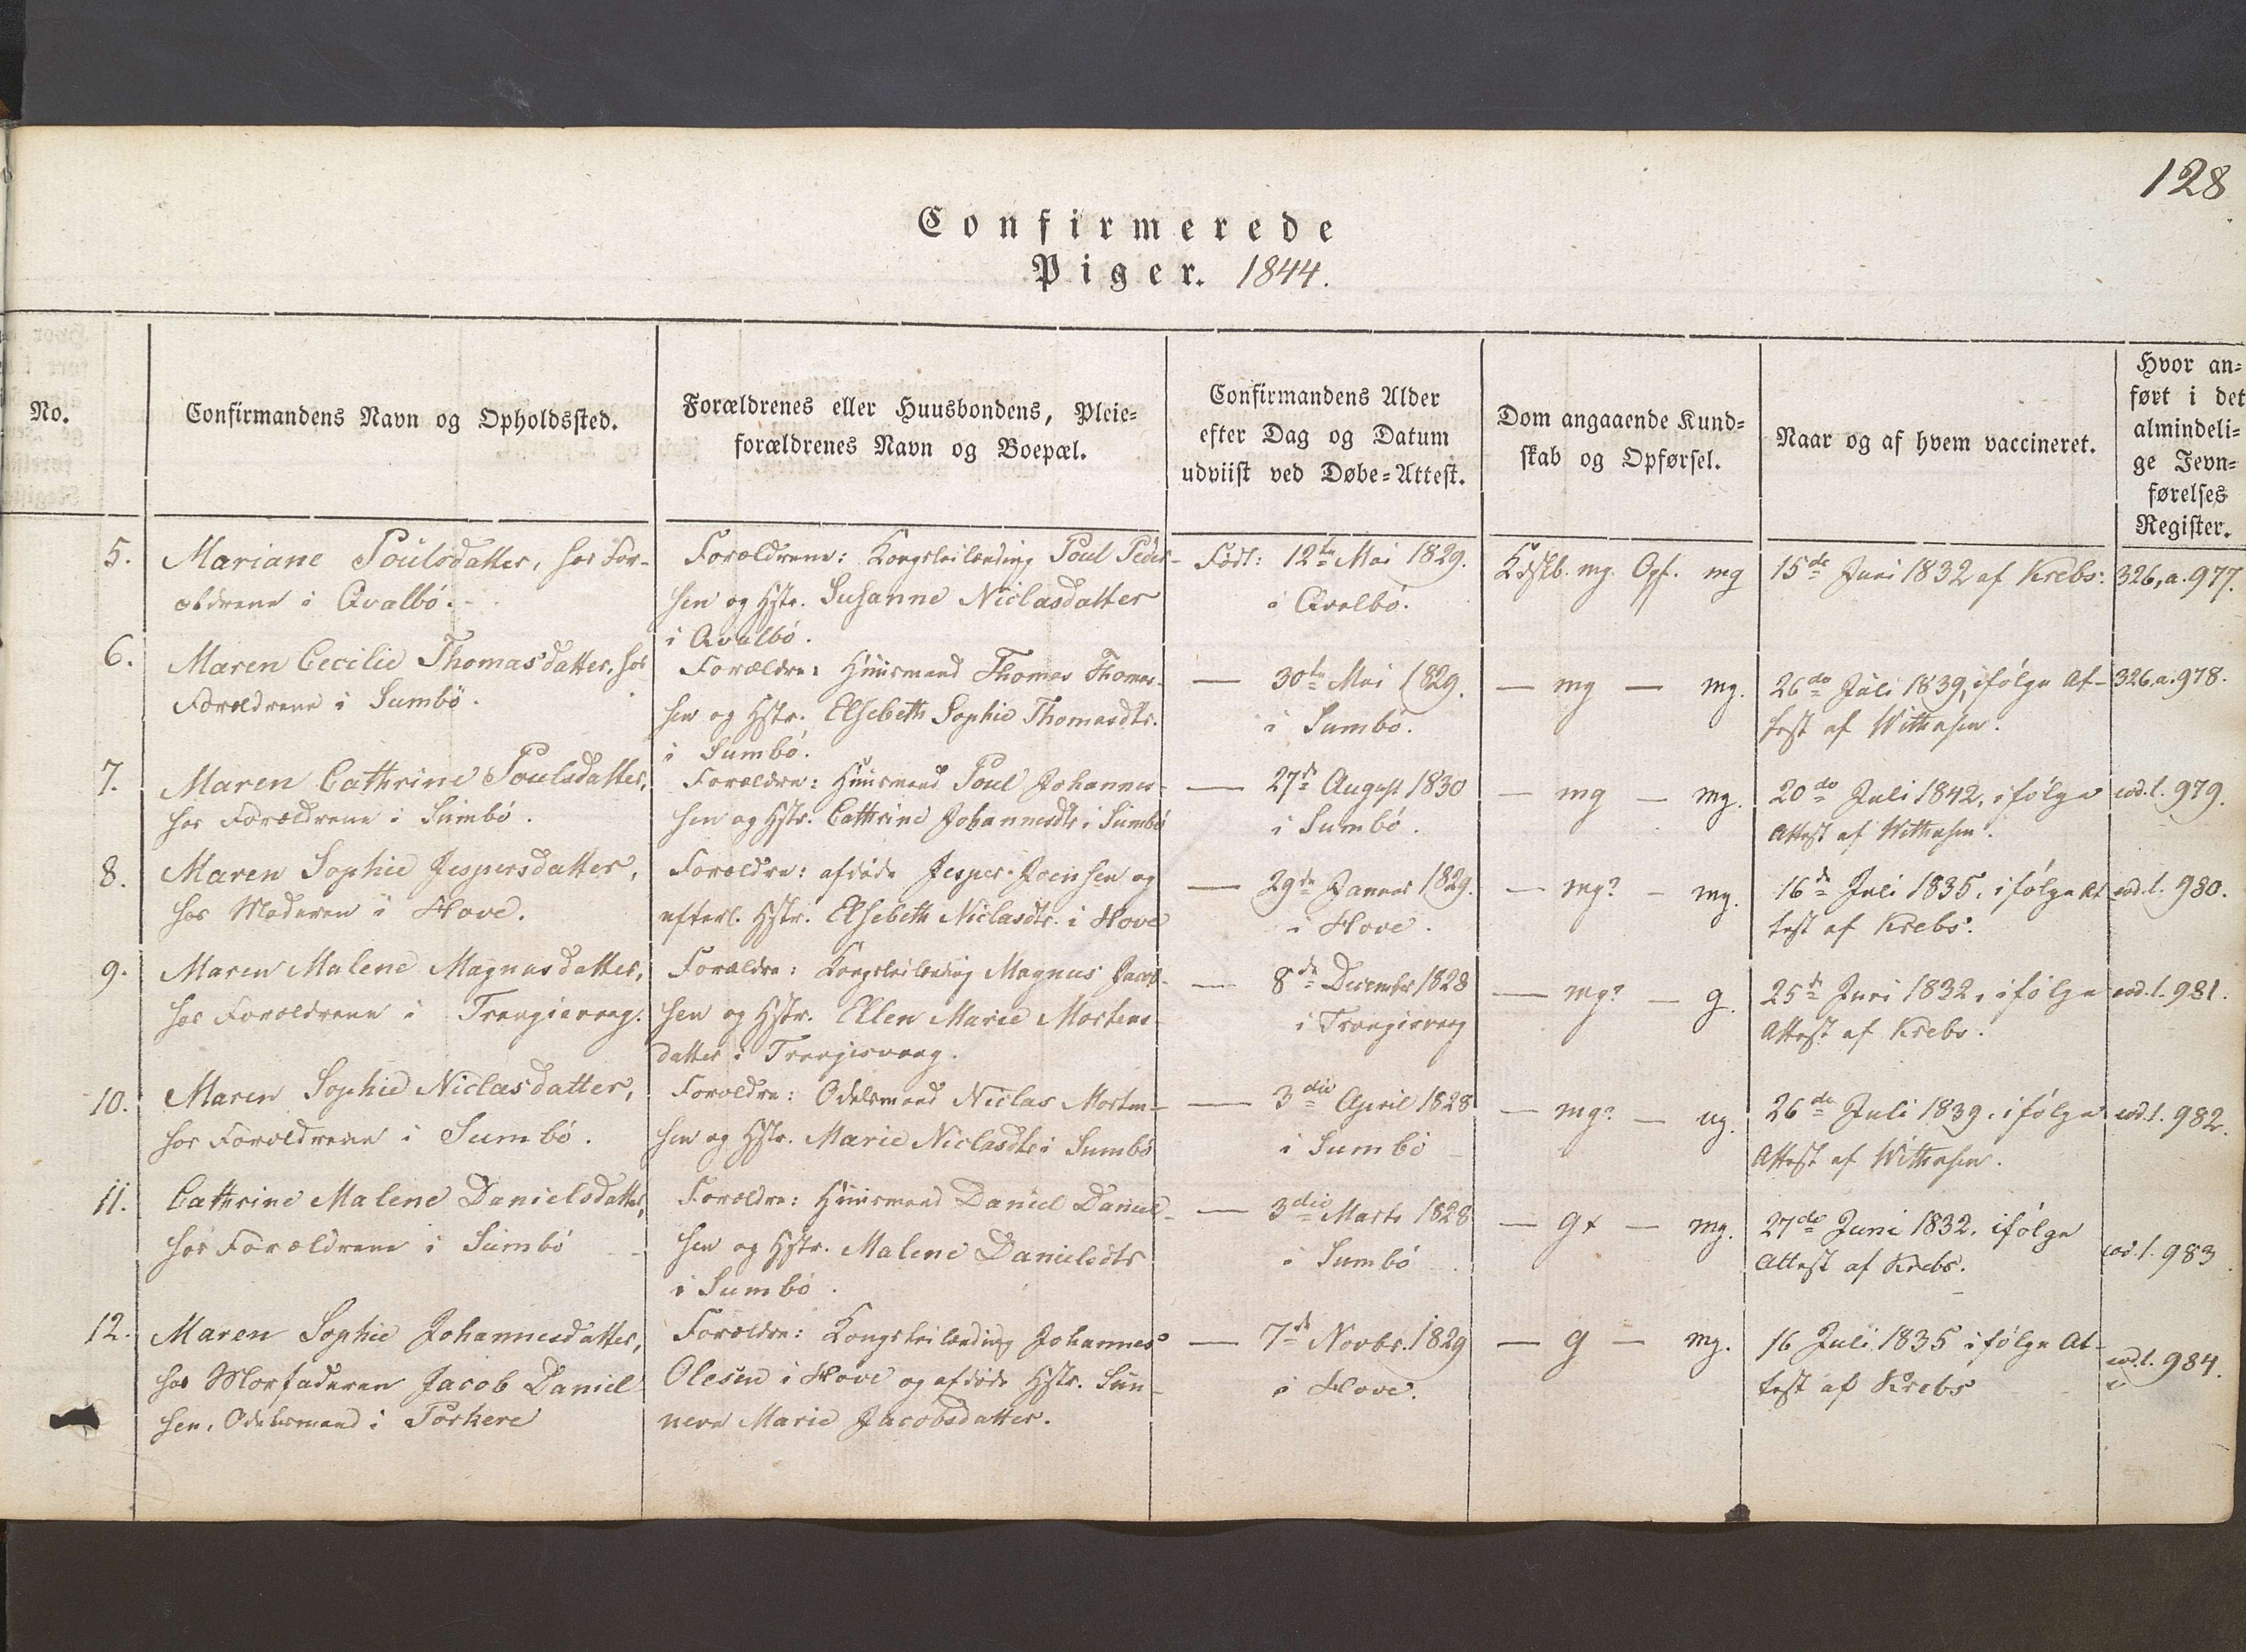 128
Confirmerede
Piger. 1844.
No.
Confirmandens Navn og Opholdssted.
Forældrenes eller Huusbondens, Pleie-
forældrenes Navn og Boepæl.
Confirmandens Alder
efter Dag og Datum
udviist ved Døbe-Attest.
Dom angaaende Kund-
skab og Opførsel.
Naar og af hvem vaccineret.
Hvor an-
ført i det
almindeli-
ge Jevn-
førelses
Register.
5.
Mariane Poulsdatter, hos For-
ældrene i Qvalbö.
Forældrene: Kongsleilænding Poul Peder-
sen og Hstr. Susanne Niclasdatter
i Qvalbö.
Født: 12te Mai 1829.
i Qvalbö.
Kdskb. mg. Opf. mg
15de Juni 1832 af Krebs:
326, a. 977.
6.
Maren Cecilie Thomasdatter, hos
Forældrene i Sumbö.
Forældre: Huusmand Thomas Thomas-
sen og Hstr. Elsebeth Sophie Thomasdtr.
i Sumbö.
— 30te Mai 1829.
i Sumbö.
— mg — mg.
26de Juli 1839, ifølge At-
test af Withusen.
326. a. 978.
7.
Maren Cathrine Poulsdatter,
hos Forældrene i Sumbö.
Forældre: Huusmand Poul Johannes-
sen og Hstr. Cathrine Johannesdtr i Sumbö
— 27de August 1830
i Sumbö.
— mg — mg.
20de Juli 1842, ifølge
Attest af Withusen.
eod. l. 979.
8.
Maren Sophie Jespersdatter,
hos Moderen i Hove.
Forældre: afdøde Jesper Joensen og
efterl. Hstr. Elsebeth Niclasdtr. i Hove
— 29de Januar 1829.
i Hove.
— mg? — mg.
16de Juli 1835, ifølge At
test af Krebs.
eod. l. 980.
9.
Maren Malene Magnusdatter,
hos Forældrene i Trangisvaag.
Forældre: Kongsleilænding Magnus Jacob-
sen og Hstr. Ellen Marie Mortens-
datter i Trangisvaag.
— 8de December 1828
i Trangisvaag
— mg? — g.
25de Juni 1832, ifølge
Attest af Krebs.
eod. l. 981.
10.
Maren Sophie Niclasdatter,
hos Forældrene i Sumbö.
Forældre: Odelsmand Niclas Morten-
sen og Hstr. Marie Niclasdtr i Sumbö
— 3die April 1828
i Sumbö
— mg? — ug.
26de Juli 1839, ifølge
Attest af Withusen.
eod. l. 982.
11.
Cathrine Malene Danielsdatter,
hos Forældrene i Sumbö
Forældre: Huusmand Daniel Daniel-
sen og Hstr. Malene Danielsdtr
i Sumbö.
— 3die Marts 1828
i Sumbö
— g+ — mg.
27de Juni 1832, ifølge
Attest af Krebs.
eod. l. 983.
12.
Maren Sophie Johannesdatter,
hos Morfaderen Jacob Daniel
sen, Odelsmand i Porkere
Forældre: Kongsleilænding Johannes
Olesen i Hove og afdøde Hstr. Sun-
neva Marie Jacobsdatter.
— 7de Novbr. 1829
i Hove.
— g — mg.
16 Juli 1835 ifølge At-
test af Krebs
eod. l. 984.